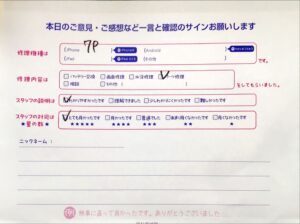 本日のご意見・ご感想など一言と確認のサインお願いします
修理機種は
iPhone 7P
Android
iPad
その他
です。
修理内容は
バッテリー交換 画面修理 水没修理
相談 その他
をしてもらいました。
スタッフの説明は
わかりやすかったです 理解できました 少しわかりにくかったです 難しかったです
スタッフの対応は
とても良かったです 良かったです 普通でした あまり良くなかったです 良くなかったです
★星の数★
★★★★★ ★★★★ ★★★ ★★ ★
ニックネーム:
検索に迷って良かったです。ありがとうございました